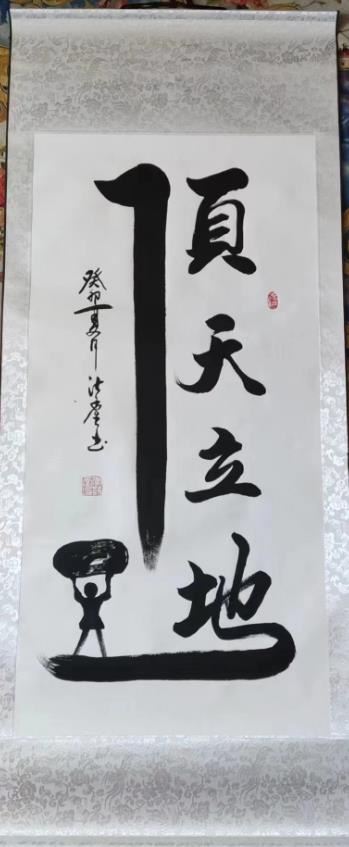 頂天立地
癸卯夏月